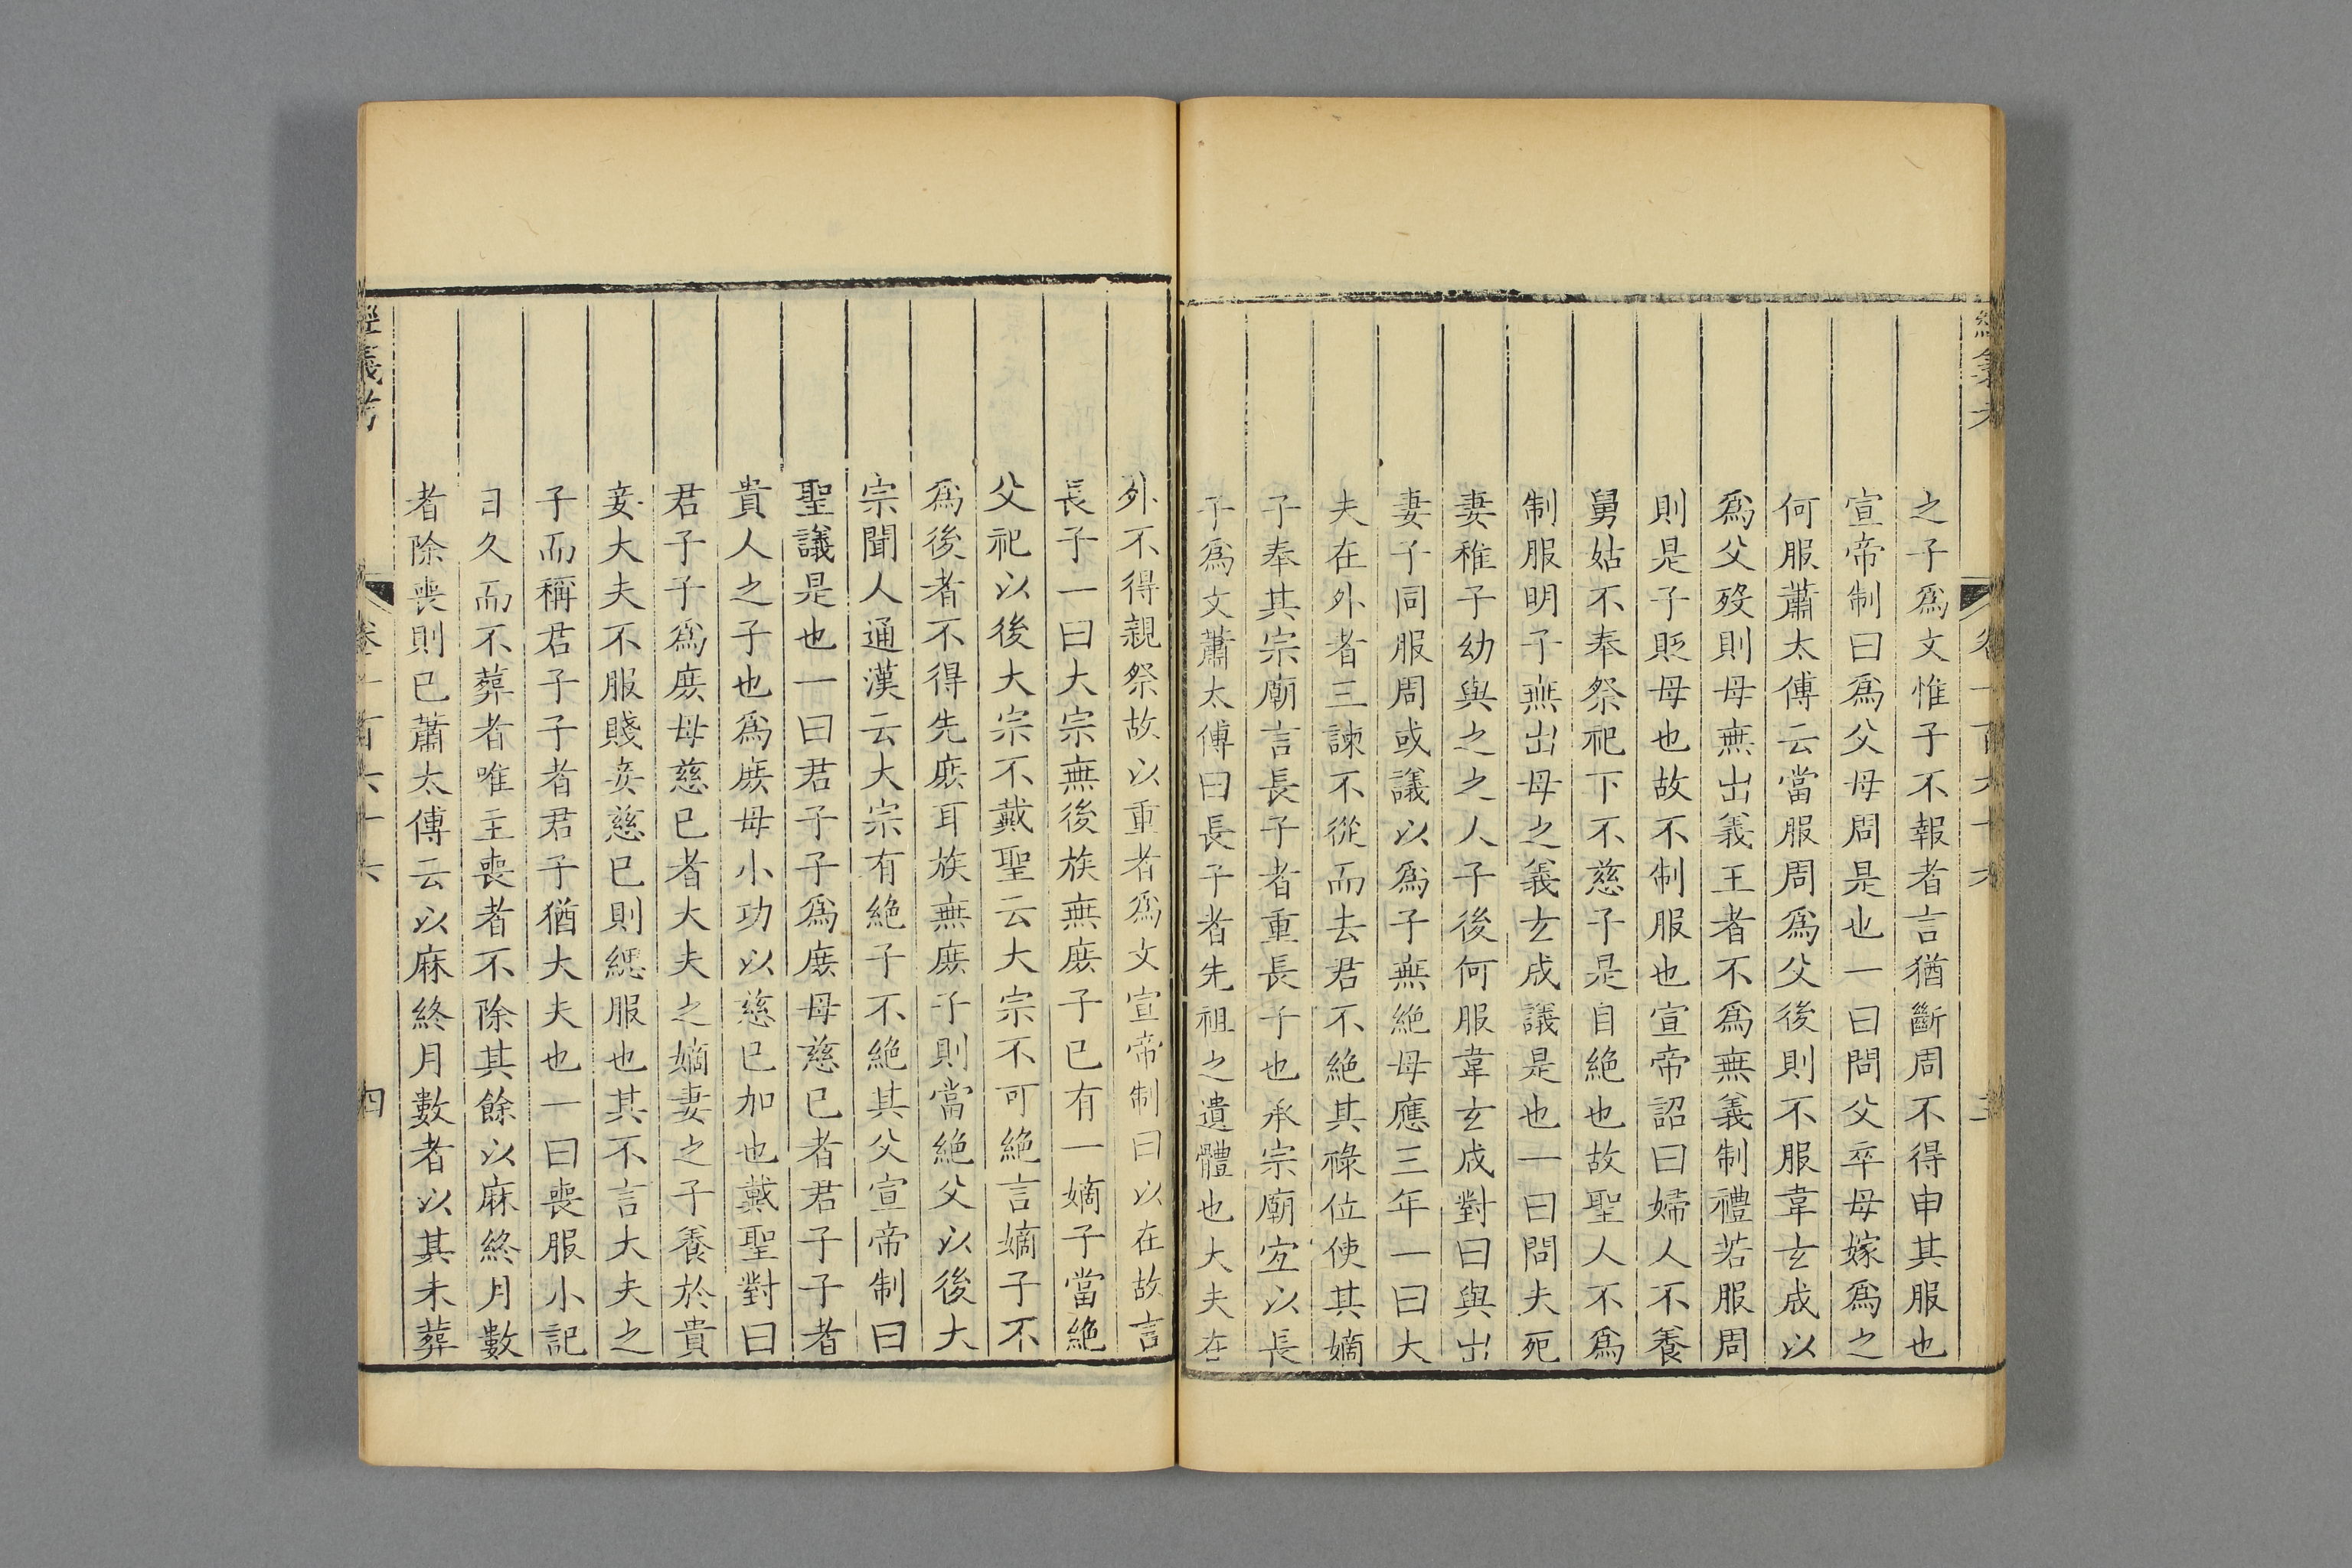 之子爲文惟子不報者言猶斷周不得申其服也
宣帝制曰爲父母周是也一曰問父卒母嫁爲之
何服蕭太傅云當服周爲父後則不服韋玄成以
爲父歿則母無出義王者不爲無義制禮若服周
則是子貶母也故不制服也宣帝詔曰婦人不養
舅姑不奉祭祀下不慈子是自絶也故聖人不爲
制服明子無出母之義玄成議是也一曰問夫死
妻稚子幼與之之人子後何服韋玄成對曰與出
妻子同服周或議以爲子無絶母應三年一曰大
夫在外者三諫不從而去君不絶其祿位使其嫡
子奉其宗廟言長子者重長子也承宗廟宐以長
子爲文蕭太傅曰長子者先祖之遺體也大夫在
外不得親祭故以重者爲文宣帝制曰以在故言
長子一曰大宗無後族無庶子已有一嫡子當絶
父祀以後大宗不戴聖云大宗不可絶言嫡子不
爲後者不得先庶耳族無庶子則當絶父以後大
宗聞人通漢云大宗有絶子不絶其父宣帝制曰
聖議是也一曰君子子爲庶母慈已者君子子者
貴人之子也爲庶母小功以慈已加也戴聖對曰
君子子爲庶母慈已者大夫之嫡妻之子養於貴
妾大夫不服賤妾慈已則緦服也其不言大夫之
子而稱君子子者君子猶大夫也一曰喪服小記
曰久而不葬者唯主喪者不除其餘以麻終月數
者除喪則已蕭太傅云以麻終月數者以其未葬
經義考
卷一百六十六
四